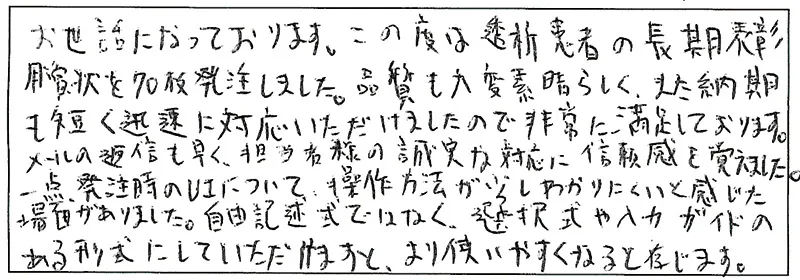 お世話になっております。この度は透析患者の長期表彰
用賞状を70枚発注しました。品質も大変素晴らしく、また納期
も短く迅速に対応いただけましたので非常に満足しております。
メールの返信も早く、担当者様の誠実な対応に信頼感を覚えました。
一点、発注時のUIについて、操作方法が少しわかりにくいと感じた
場面がありました。自由記述式ではなく、選択式や入力ガイドの
ある形式にしていただけますと、より使いやすくなると存じます。